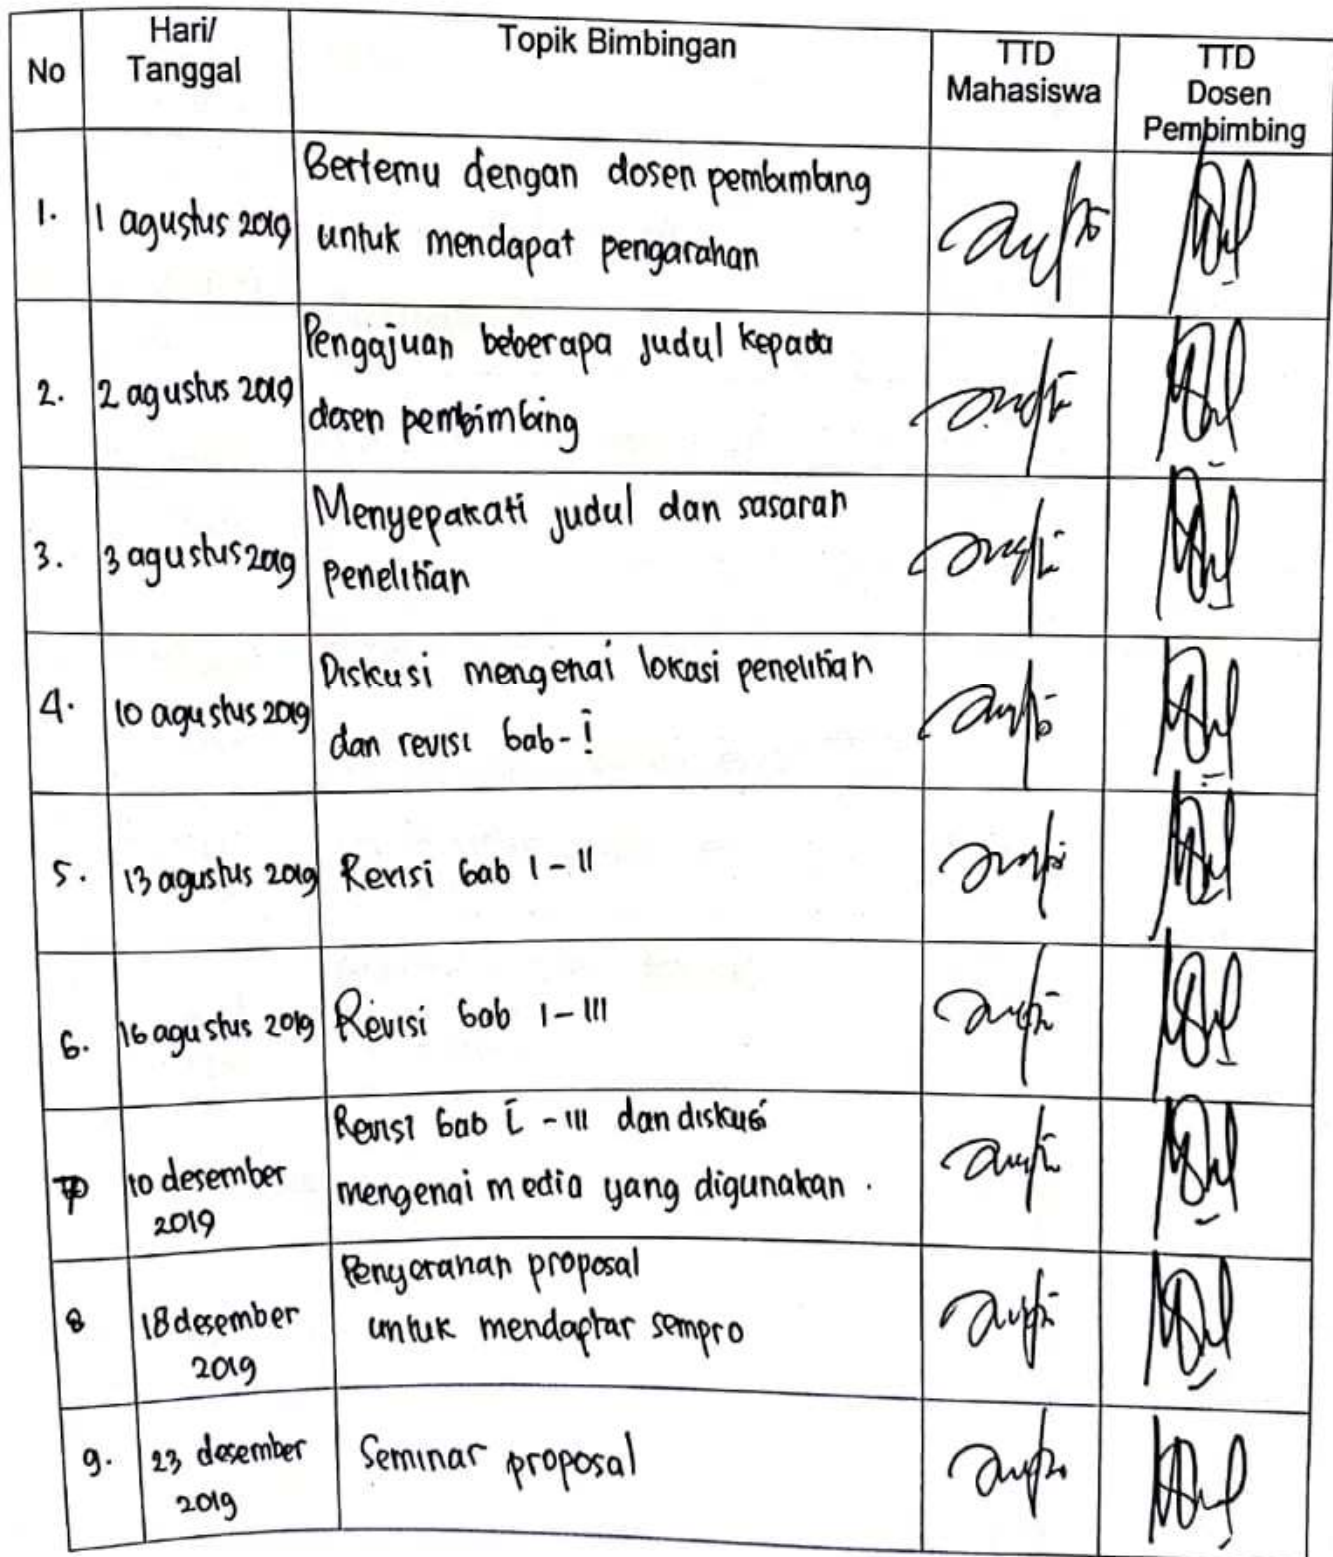 No
Hari/
Tanggal
Topik Bimbingan
TTD
Mahasiswa
TTD
Dosen
Pembimbing
1.
1 agustus 2019
Bertemu dengan dosen pembimbing
untuk mendapat pengarahan
2.
2 agustus 2019
Pengajuan beberapa judul kepada
dosen pembimbing
3.
3 agustus 2019
Menyepakati judul dan sasaran
penelitian
4.
10 agustus 2019
Diskusi mengenai lokasi penelitian
dan revisi bab-I
5.
13 agustus 2019
Revisi bab I-II
6.
16 agustus 2019
Revisi bab I-III
7
10 desember
2019
Revisi bab I-III dan diskusi
mengenai media yang digunakan.
8
18 desember
2019
Penyerahan proposal
untuk mendaptar sempro
9.
23 desember
2019
Seminar proposal